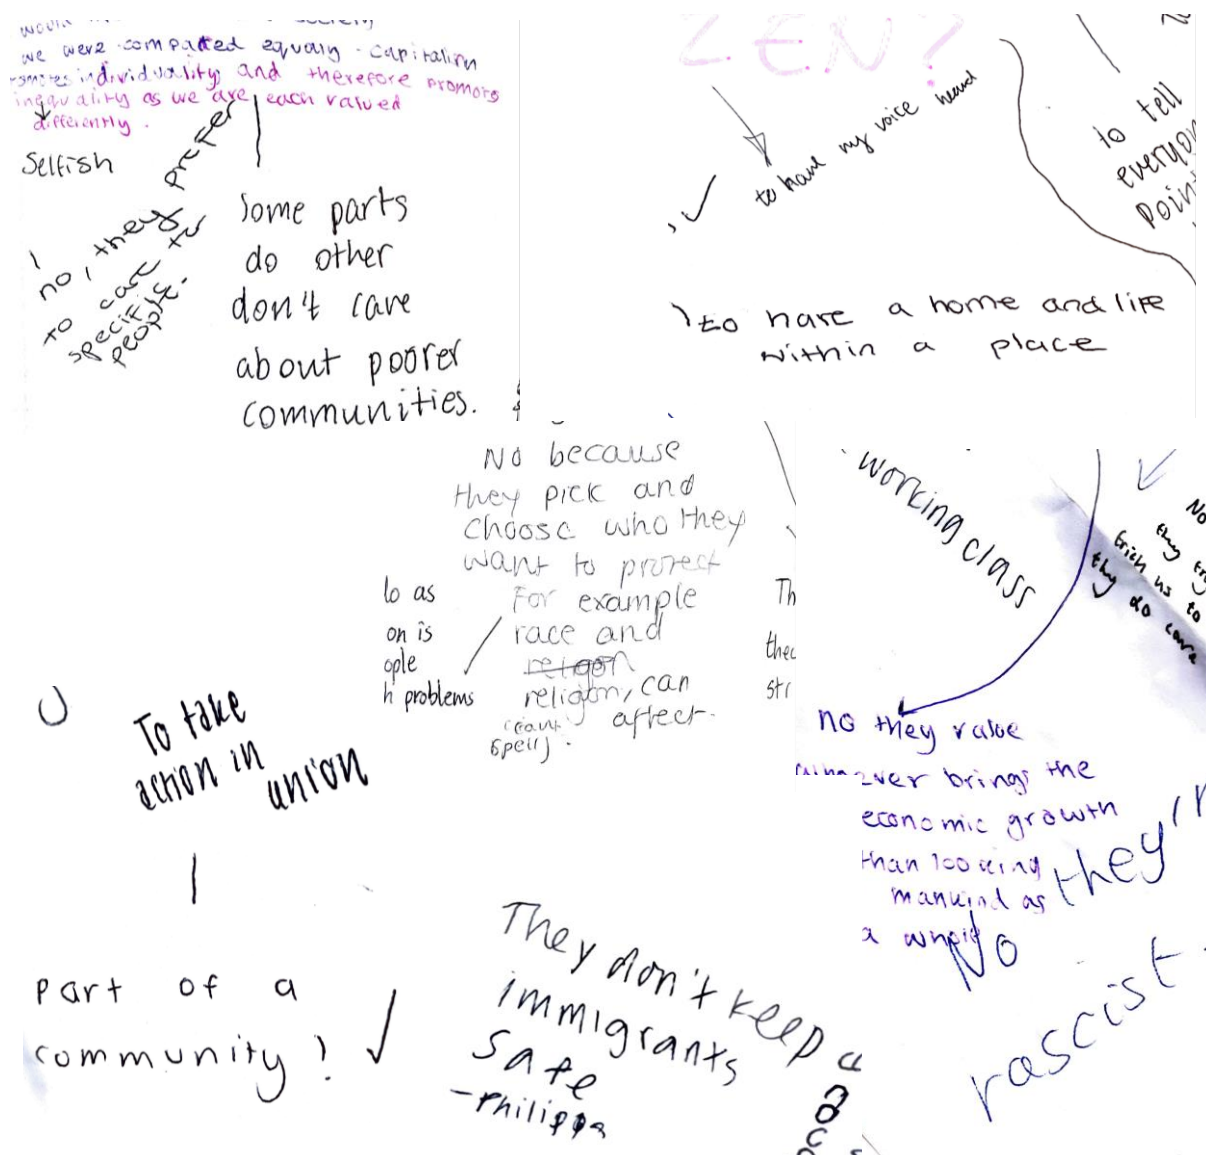 we were compaired equaly. Capitalism
promotes individuality and therefore promots
inequality as we are each valued
differently.
Selfish
no, they prefer
to care to
specific
people.
Some parts
do other
don't care
about poorer
communities.
ZEN?
to have my voice heard
to tell
everyon
point
to have a home and life
within a place
No because
they pick and
choose who they
want to protect
For example
race and
religon, can
affect.
(cant
spell).
lo as
on is
ople
h problems
Th
thec
str
working class
No
they try
trick us to
thy do care
no they value
whoever brings the
economic growth
than looking
mankind as
a whole
No
they'r
rascist.
To take
action in
union
Part of a
community?
They don't keep
immigrants
safe
-Philippa